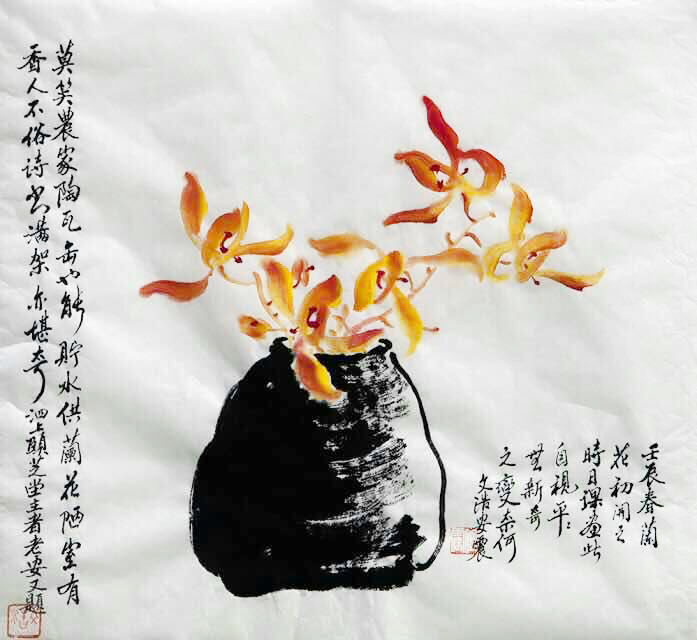 莫笑農家陶瓦缶也能貯水供蘭花陋室有
香人不俗诗书满架亦堪奇泗上頤芝堂主者老安又題
壬辰春蘭
花初開之
時日課畫此
自視平平
無新奇
之變奈何
文浩安震